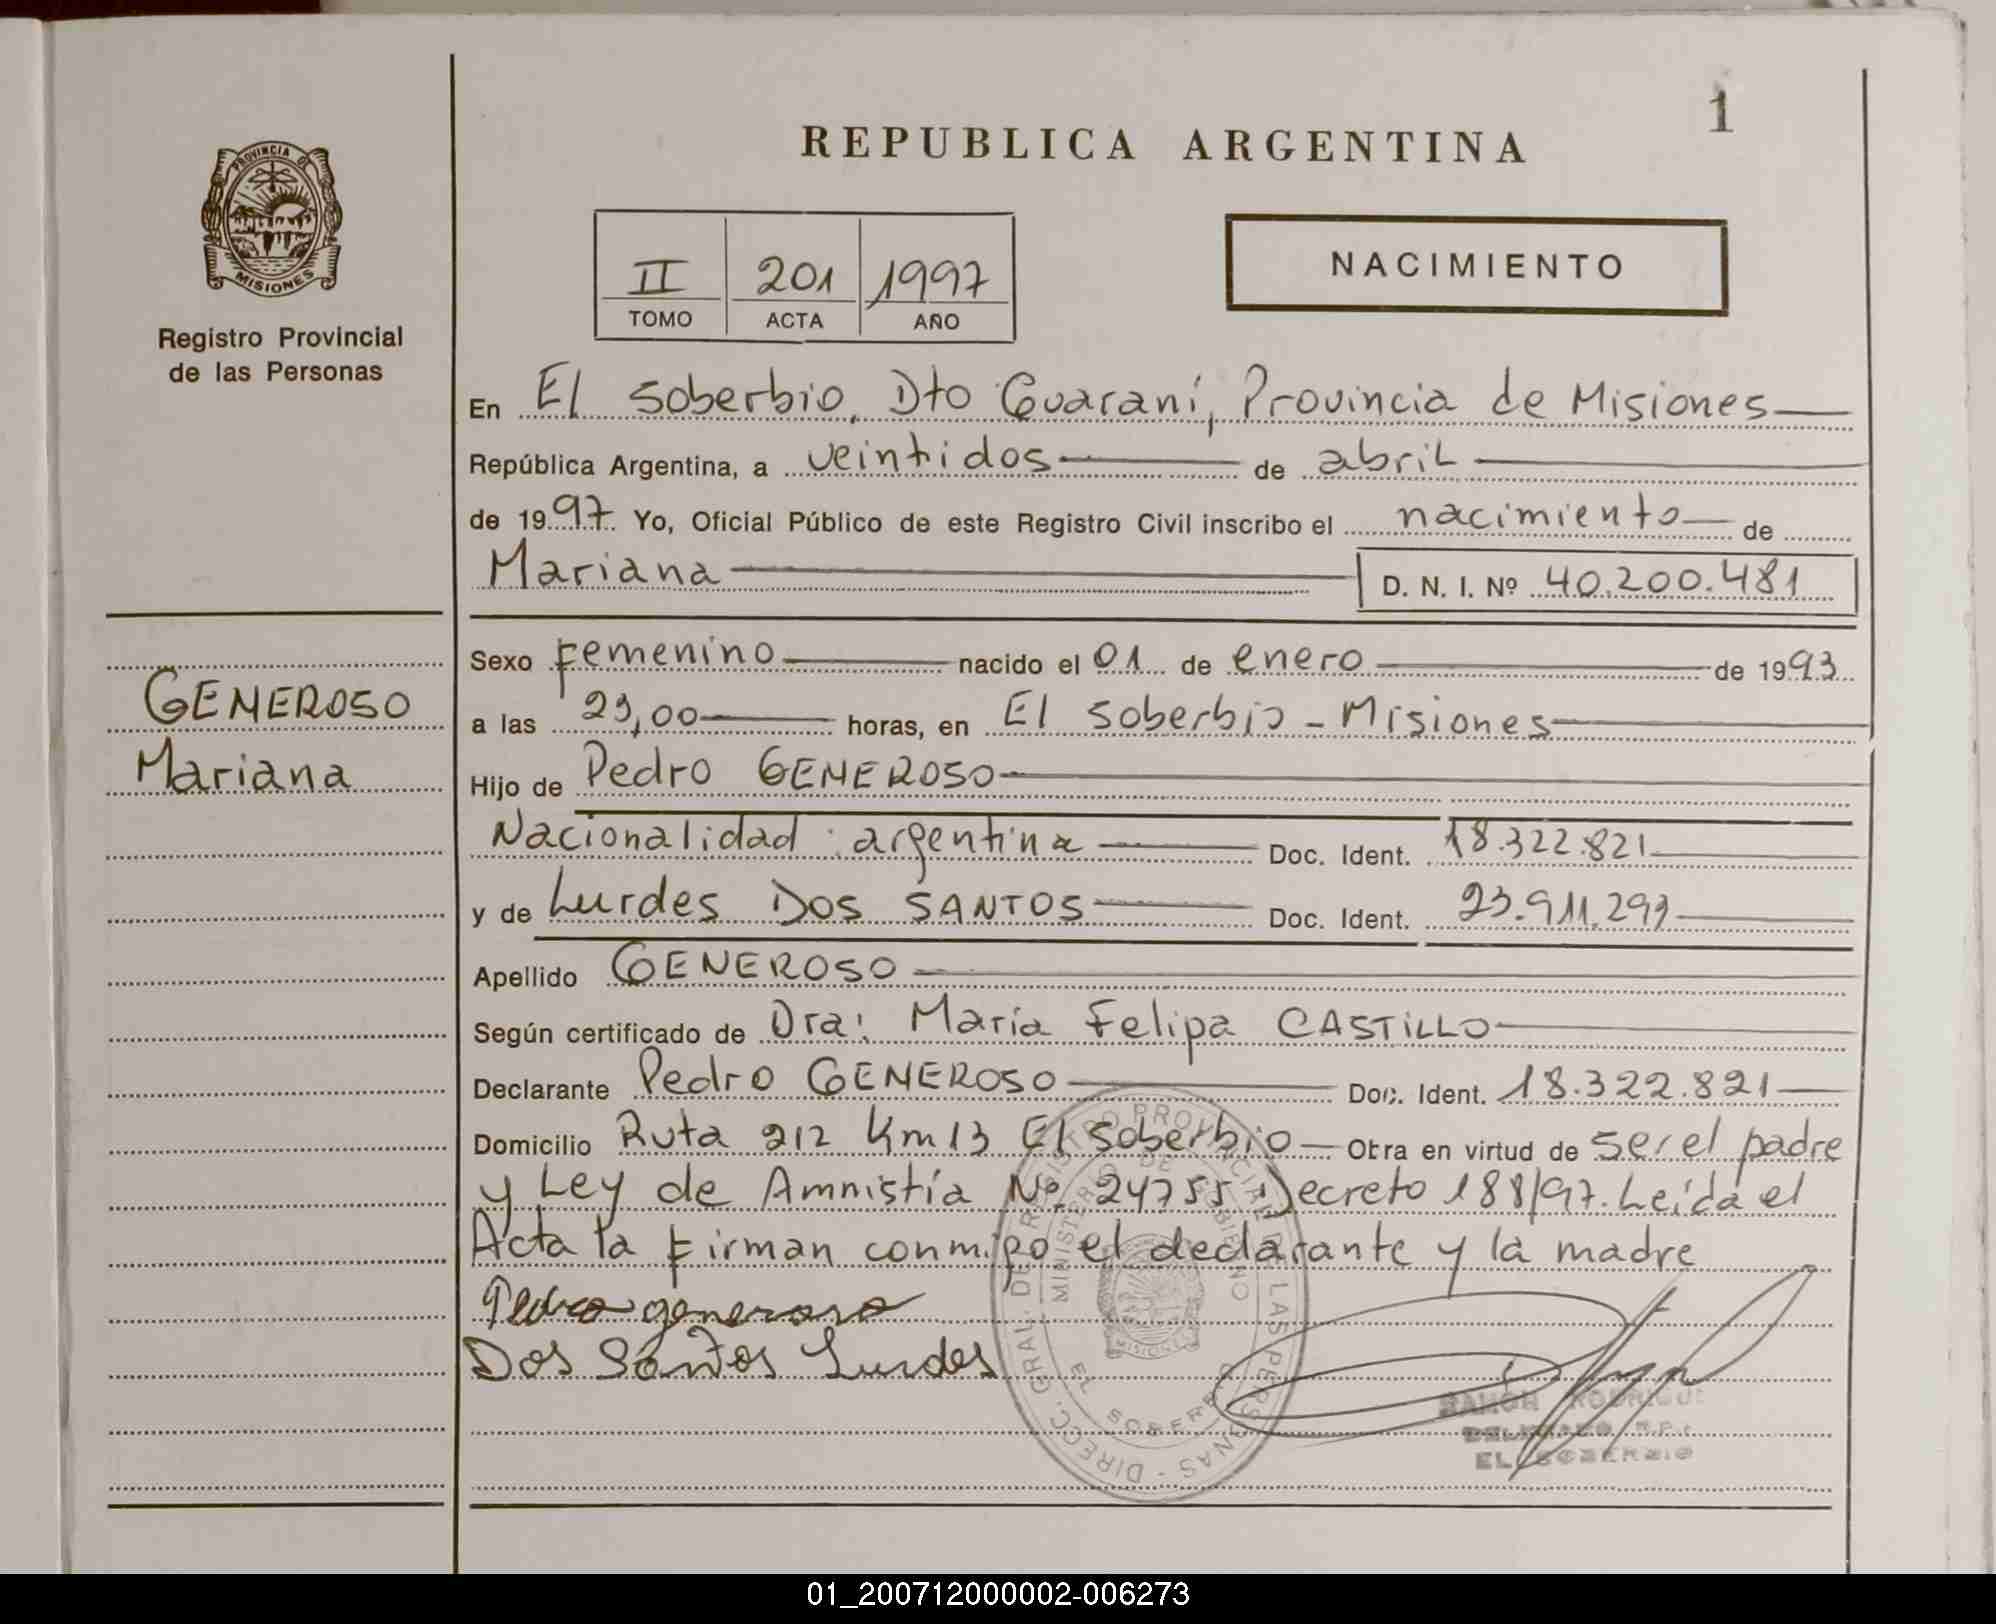 1
REPUBLICA ARGENTINA
PROVINCIA DE
MISIONES
Registro Provincial
de las Personas
II 201 1997
TOMO ACTA AÑO
NACIMIENTO
En El Soberbio, Dto Guaraní, Provincia de Misiones
República Argentina, a veintidos de abril
de 1997 Yo, Oficial Público de este Registro Civil inscribo el nacimiento de
Mariana D. N. I. Nº 40.200.481
GENEROSO
Mariana
Sexo Femenino nacido el 01 de enero de 1993
a las 23,00 horas, en El Soberbio - Misiones
Hijo de Pedro GENEROSO
Nacionalidad: argentina Doc. Ident. 18.322.821
y de Lurdes DOS SANTOS Doc. Ident. 23.911.293
Apellido GENEROSO
Según certificado de Dra: María Felipa CASTILLO
Declarante Pedro GENEROSO Doc. Ident. 18.322.821
Domicilio Ruta 212 Km 13 El Soberbio Obra en virtud de ser el padre
y Ley de Amnistía Nº 24755 Decreto 188/97. Leída el
Acta la Firman conmigo el declarante y la madre
Pedro generoso
Dos Santos Lurdes
DIRECC. GRAL. DE REGISTRO PROVINCIAL DE LAS PERSONAS -
MINISTERIO DE GOBIERNO
MISIONES
EL SOBERBIO
RAMON RODRIGUE
DELEGADO R.P.
EL SOBERBIO
01_200712000002-006273